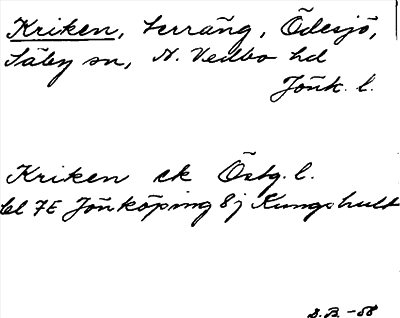 Kriken, terräng, Ödesjö,
Säby sn, N. Vedbo hd
Jönk. l.
Kriken ek Östg. l.
bl 7E Jönköping 8j Kungshult
S.B. -58